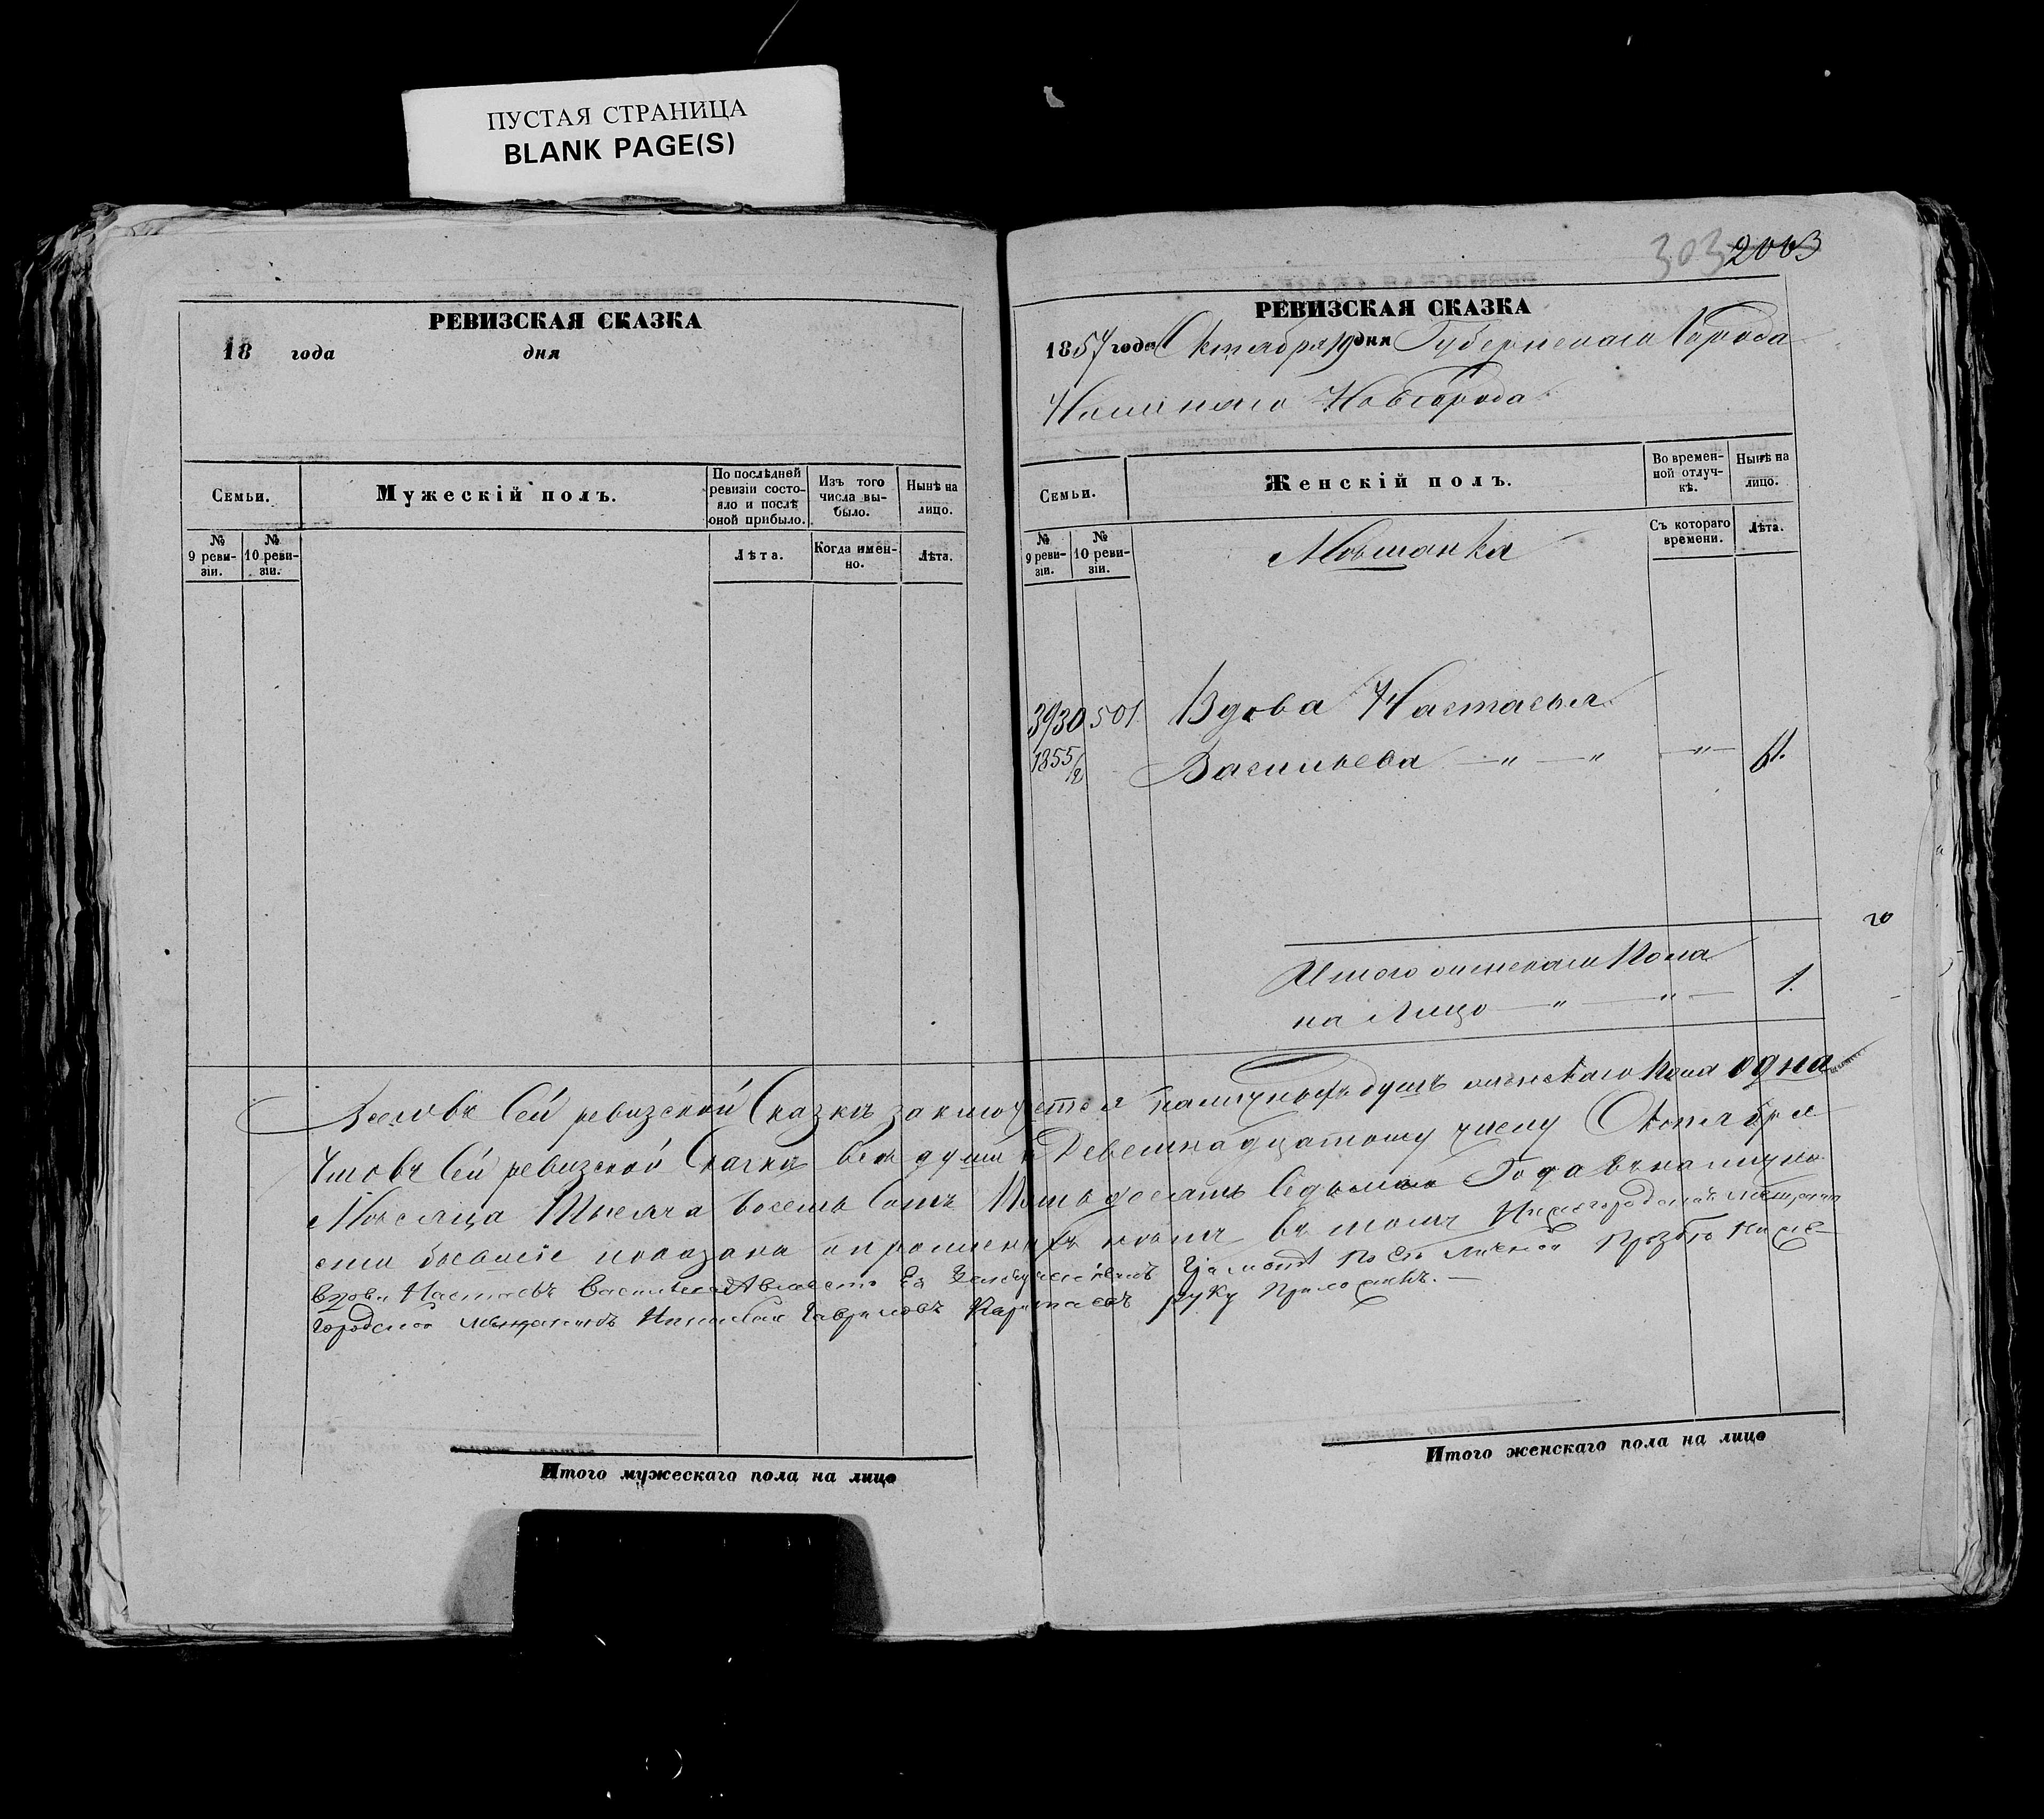 ПУСТАЯ СТРАНИЦА
BLANK PAGE(S)
РЕВИЗСКАЯ СКАЗКА
18 года дня
Семьи.
Мужескій полъ.
По послѣдней ревизіи состояло и послѣ оной прибыло.
Изъ того числа выбыло.
Нынѣ на лицо.
№ 9 ревизіи.
№ 10 ревизіи.
Лѣта.
Когда именно.
Лѣта.
303 2003
РЕВИЗСКАЯ СКАЗКА
1857 года Октября 19 дня Губернскаго Города
Нижняго Новгорода
Семьи.
Женскій полъ.
Во временной отлучкѣ.
Нынѣ на лицо.
№ 9 ревизіи.
№ 10 ревизіи.
Съ котораго времени.
Лѣта.
Мѣщанка
3930 501 Вдова Настасья
1855/2 Васильева — „ — „ — „ — 61.
Итого женскаго Пола
на Лицо — „ — „ — 1.
Всего въ Сей ревизской Сказкѣ заключается наличныхъ душъ женскаго пола одна
Что въ Сей ревизской Сказкѣ всѣ души къ Девятнадцатому числу Октября
Мѣсяца Тысяча восемь Сотъ Пятьдесятъ Седьмаго Года въ налично
сти бывшіе показаны и пропущенныхъ нѣтъ въ томъ Нижегородская мѣщанка
вдова Настасья Васильева А вмѣсто Ея грамотѣ по Ея личной прозбѣ Ниже
городской мѣщанинъ Николай Гавриловъ руку приложилъ.
Итого мужескаго пола на лицо
Итого женскаго пола на лицо